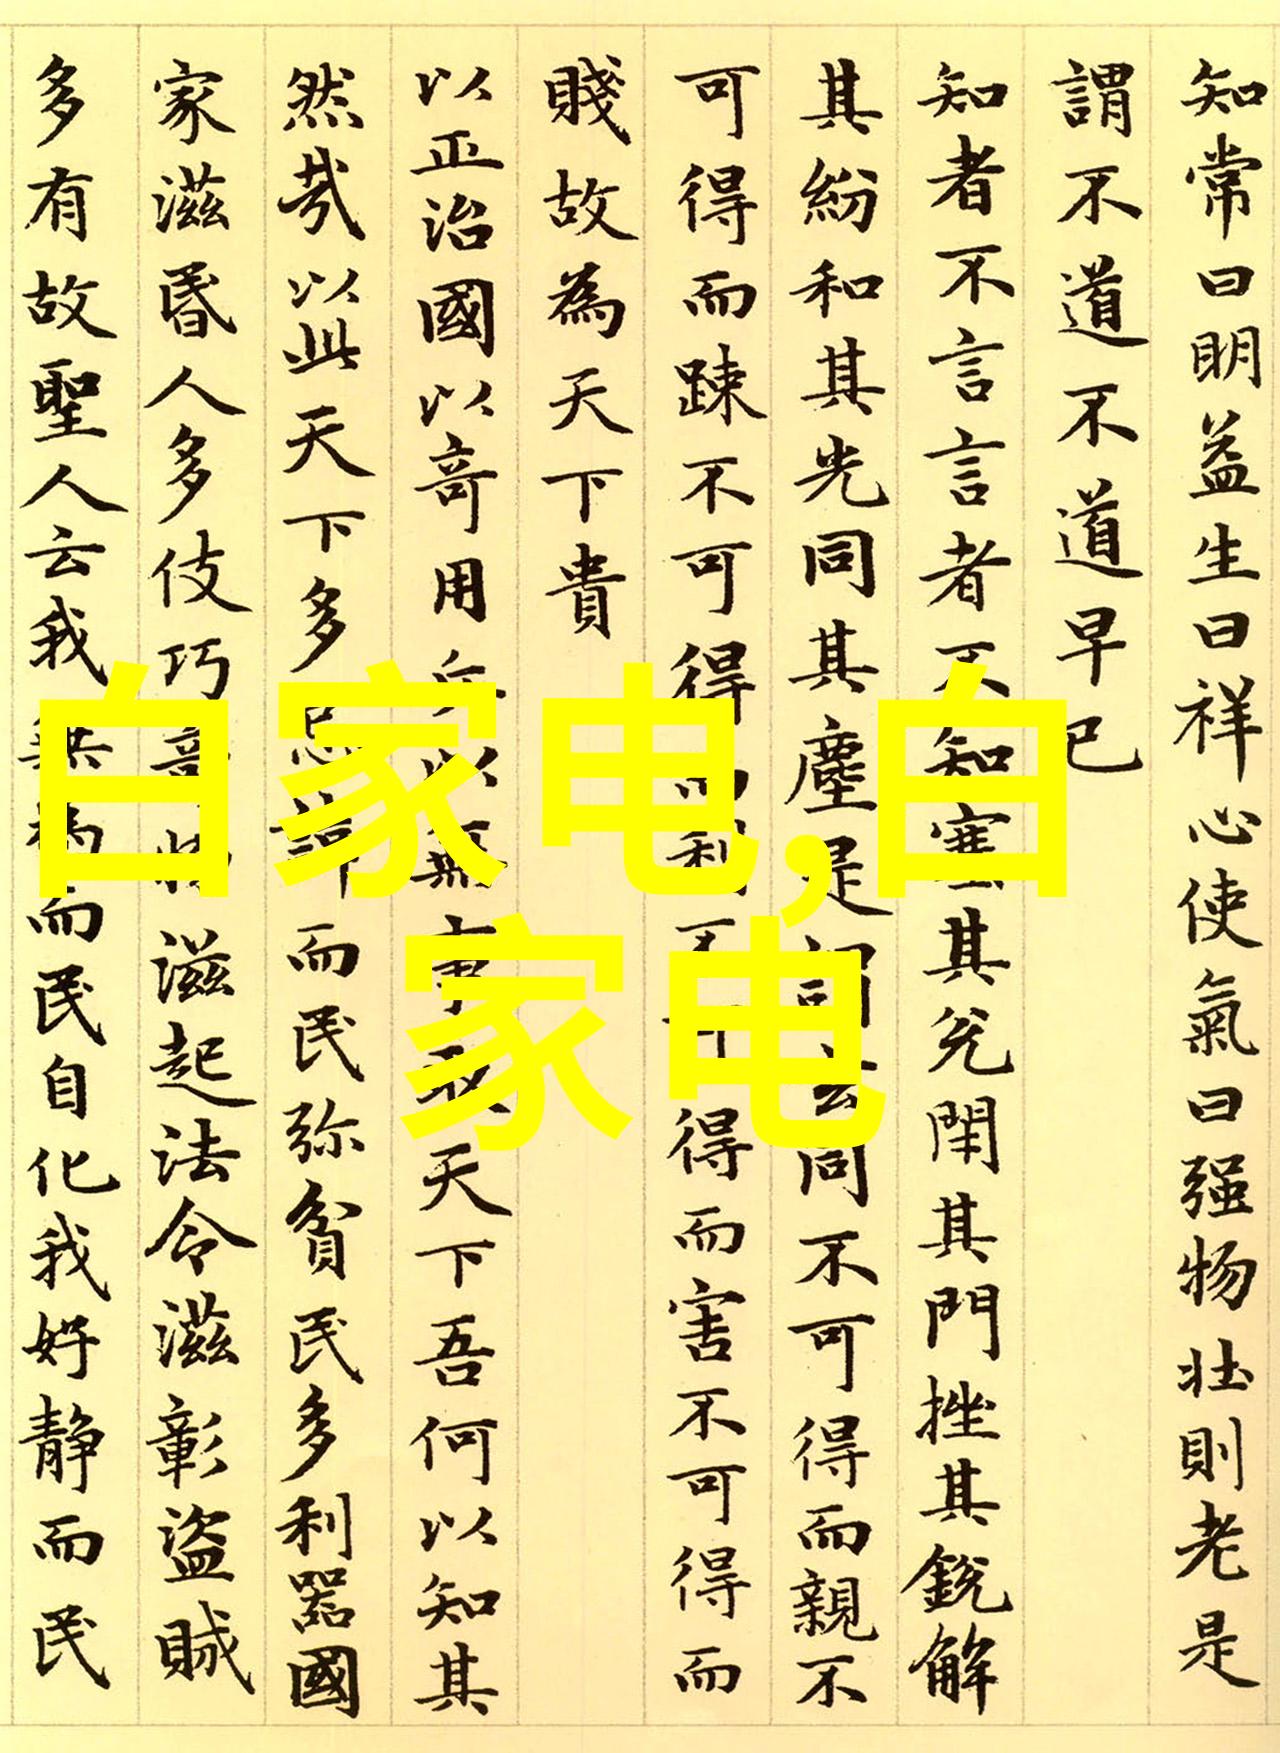 知常曰明益生曰祥心使氣曰强物壯則老是
謂不道不道早已
知者不言言者不知塞其兊閇其門挫其銳解
其紛和其光同其塵是謂玄同不可得而親不
可得而踈不可得而利不可得而害不可得而
賤故為天下貴
以正治國以竒用兵以無事取天下吾何以知其
然哉以此天下多忌諱而民弥貧民多利器國
家滋昬人多伎巧竒物滋起法令滋彰盜賊
多有故聖人云我無為而民自化我好靜而民
白家电,白
家电